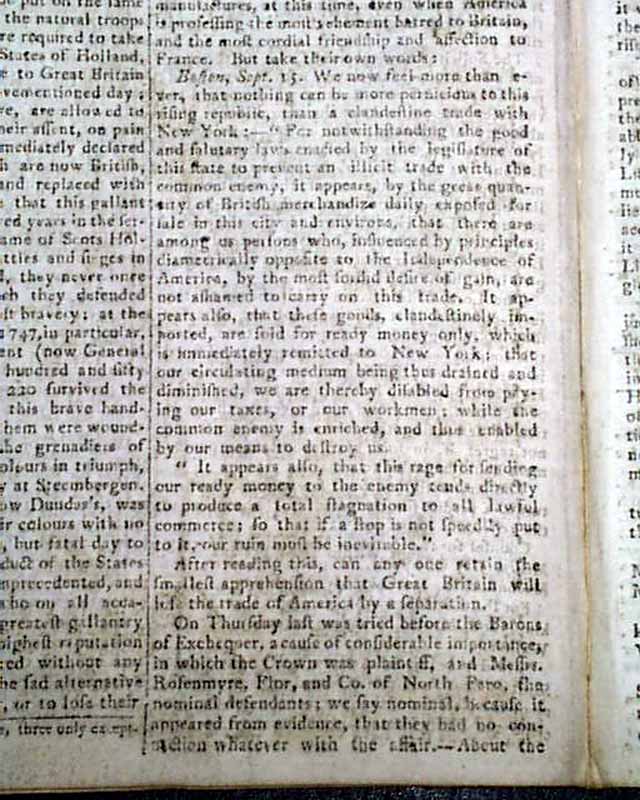 put on the same
the natural troops
are required to take
States of Holland,
e to Great Britain
vementioned day;
ve, are allowed to
heir assent, on pain
mmediately declared
h are now British,
and replaced with
that this gallant
red years in the ser-
ame of Scots Hol-
attles and sieges in
they never once
ch they defended
st bravery; at the
1747, in particular,
ent (now General
hundred and fifty
220 survived the
this brave hand-
hem were wound-
the grenadiers of
olours in triumph,
y at Steenbergen.
ow Dundas's, was
ir colours with no
, but fatal day to
duct of the States
nprecedented, and
who on all acca-
greatest gallantry
highest reputation
ced without any
he sad alternative
, or to lose their
s, three only except-
manufactures, at this time, even when America
is professing the most vehement hatred to Britain,
and the most cordial friendship and affection to
France. But take their own words:
Boston, Sept. 15. We now feel more than e-
ver, that nothing can be more pernicious to this
rising republic, than a clandestine trade with
New York:—"For notwithstanding the good
and salutary laws enacted by the legislature of
this state to prevent an illicit trade with the
common enemy, it appears, by the great quan-
tity of British merchandize daily exposed for
sale in this city and environs, that there are
among us persons who, influenced by principles
diametrically opposite to the Independence of
America, by the most sordid desire of gain, are
not ashamed to carry on this trade. It ap-
pears also, that these goods, clandestinely im-
ported, are sold for ready money only, which
is immediately remitted to New York; that
our circulating medium being thus drained and
diminished, we are thereby disabled from pay-
ing our taxes, or our workmen; while the
common enemy is enriched, and thus enabled
by our means to destroy us.
" It appears also, that this rage for sending
our ready money to the enemy tends directly
to produce a total stagnation to all lawful
commerce; so that if a stop is not speedily put
to it, our ruin must be inevitable."
After reading this, can any one retain the
smallest apprehension that Great Britain will
lose the trade of America by a separation.
On Thursday last was tried before the Barons
of Exchequer, a cause of considerable importance,
in which the Crown was plaintiff, and Messrs.
Rosenmyre, Flor, and Co. of North Faro, the
nominal defendants; we say nominal, because it
appeared from evidence, that they had no con-
nection whatever with the affair.—About the